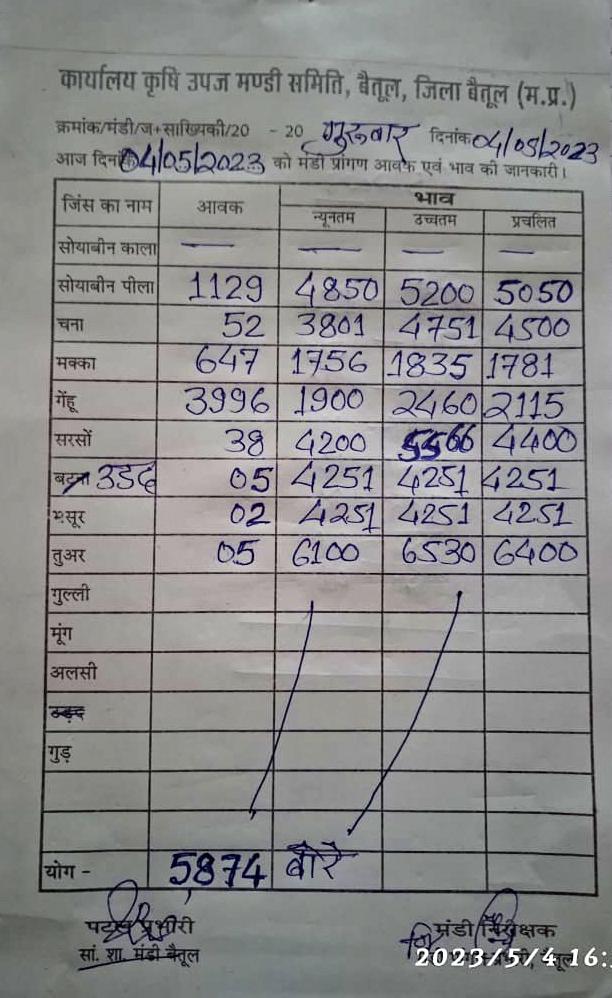 कार्यालय कृषि उपज मण्डी समिति, बैतूल, जिला बैतूल (म.प्र.)
क्रमांक/मंडी/ज+साख्यिकी/20 - 20 गुरूवार दिनांक 04/05/2023
आज दिनांक 04/05/2023 को मंडी प्रांगण आवक एवं भाव की जानकारी।
जिंस का नाम आवक भाव
न्यूनतम उच्चतम प्रचलित
सोयाबीन काला — — —
सोयाबीन पीला 1129 4850 5200 5050
चना 52 3801 4751 4500
मक्का 647 1756 1835 1781
गेंहू 3996 1900 2460 2115
सरसों 38 4200 5566 4400
बटरा उडद 05 4251 4251 4251
मसूर 02 4251 4251 4251
तुअर 05 6100 6530 6400
गुल्ली
मूंग
अलसी
उड़द
गुड़
योग - 5874 बोरे
प्रभारी मंडी निरीक्षक
सां. शा. मंडी बैतूल बैतूल
2023/5/4 16: